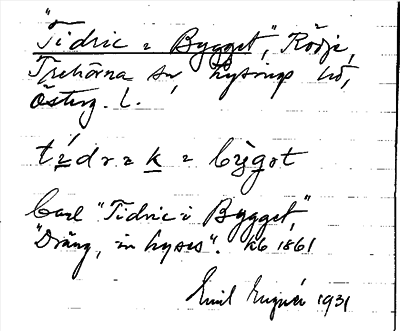 "Tidric i Bygget", Rödje,
Trehörna sn, Lysings hd,
Österg. l.
tídrik i bỳgǝt
Carl "Tidric i Bygget",
"Dräng, inhyses". Kb 1861
Emil 1931